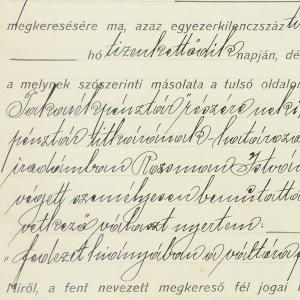 megkeresésére ma, azaz egyezerkilenczszáz ti
hó tizenkettődik napján, dé
a melynek szószerinti másolata a tulsó oldalon
Takarékpénztár részére neki
pénztár titkárának határoza
irodámban Rosonczi István
végett személyesen bemutatta
vetkező választ nyertem:
„fedezet hiányában a váltára f
Miről, a fent nevezett megkereső fél jogai m